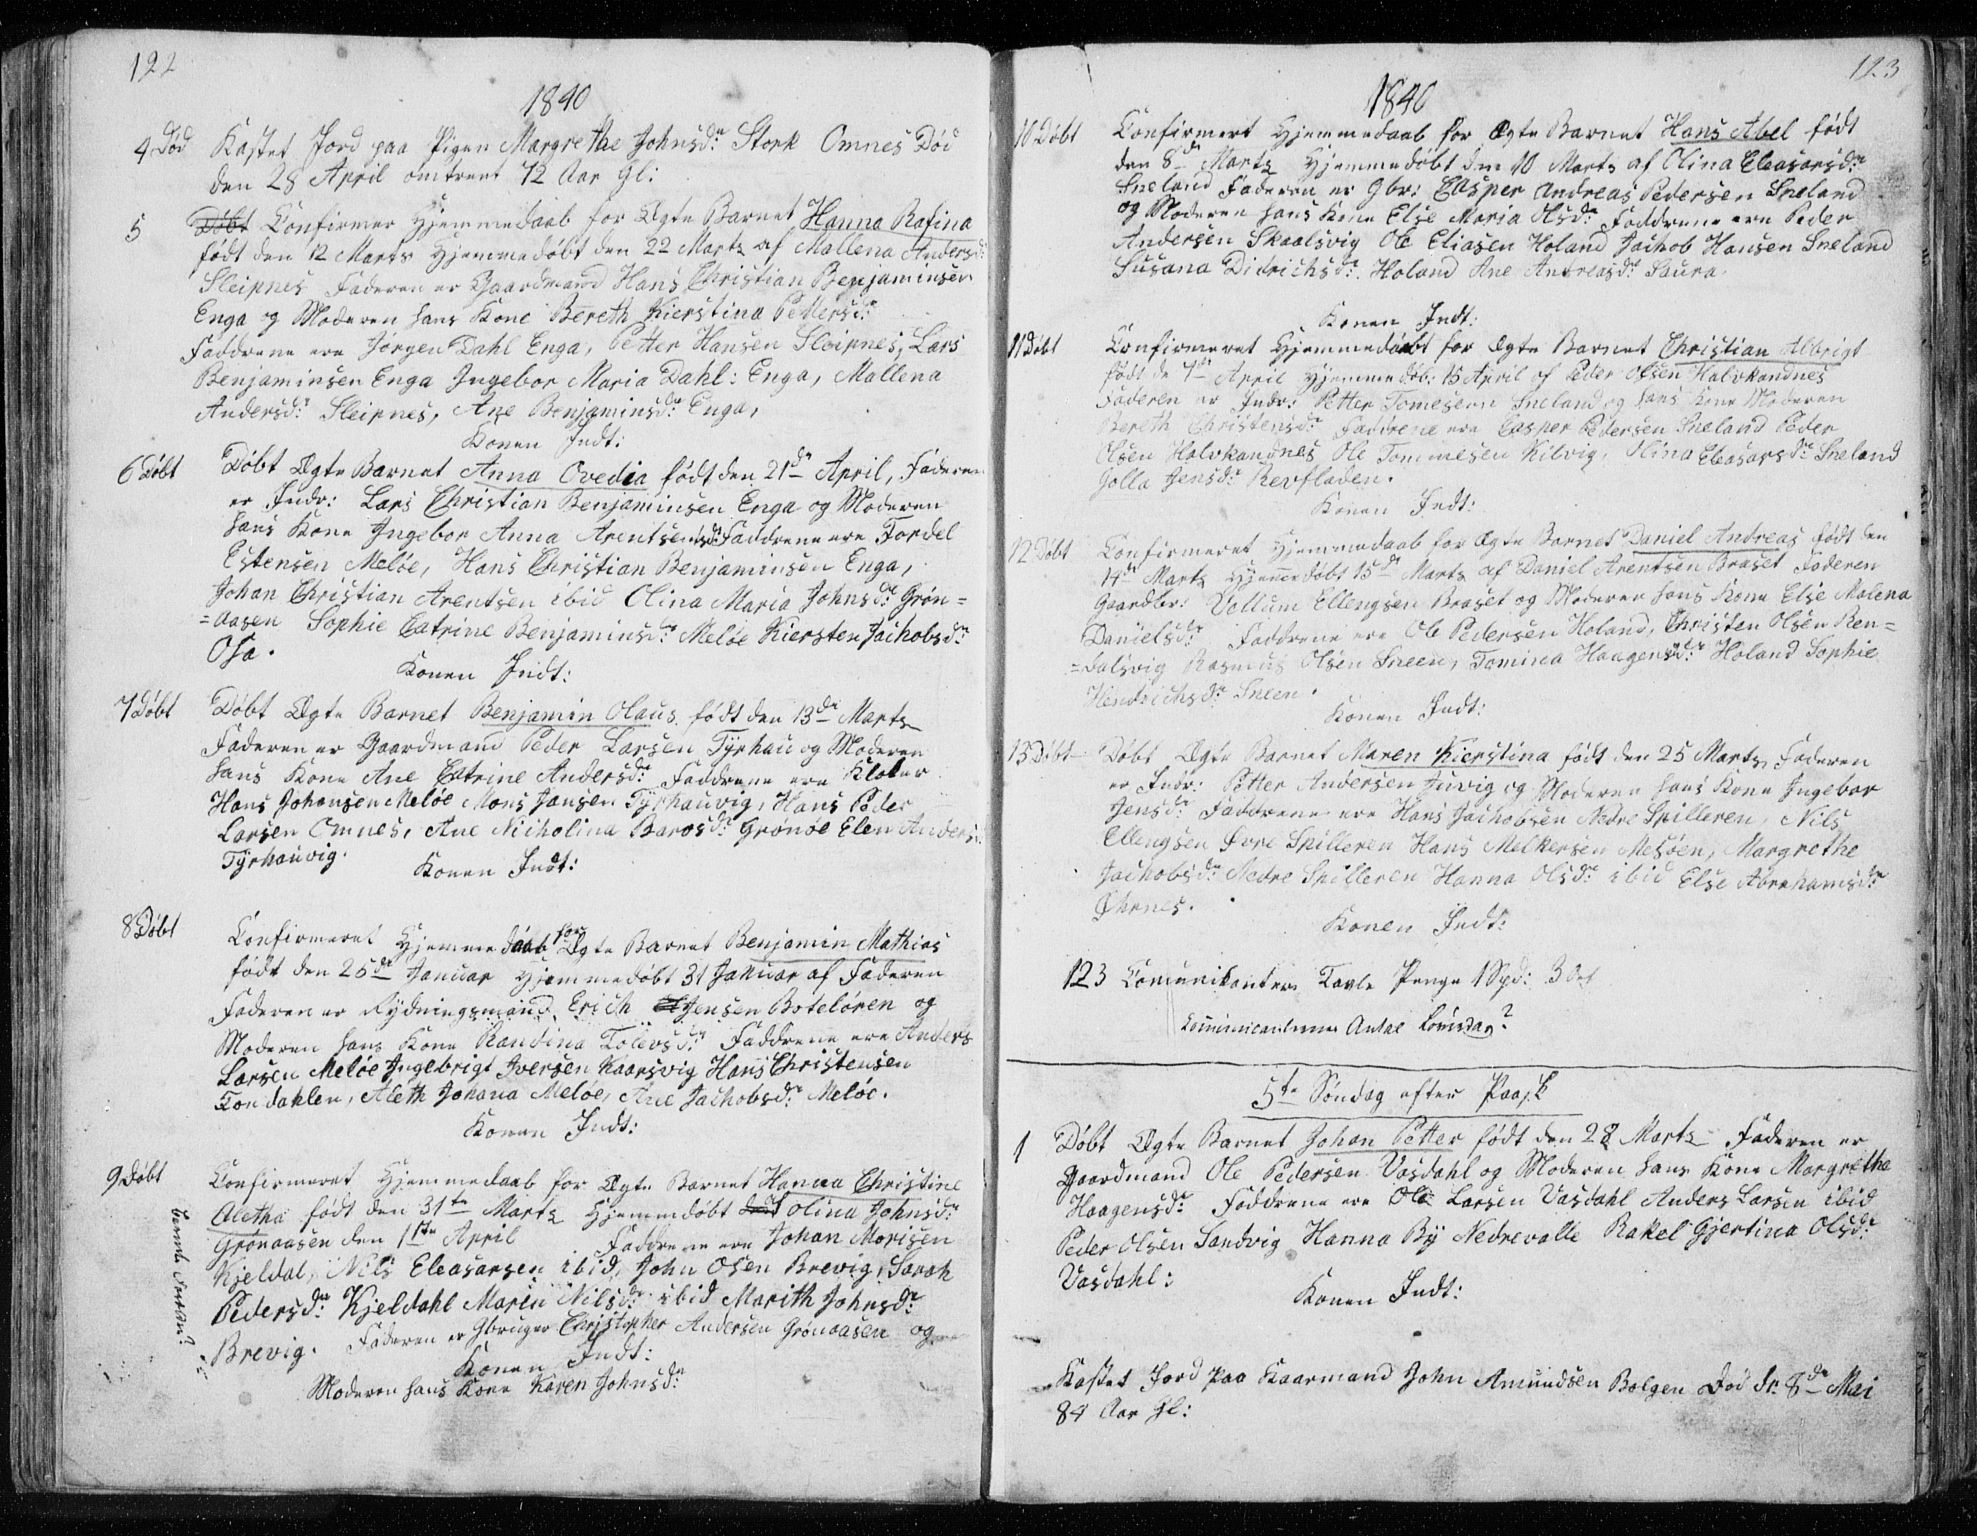 122
1840
4 Død Kastet Jord paa Pigen Margrethe Johnsdr Stork Omnes Død
den 28 April omtrent 72 Aar Gl:
5 Døbt Confirmer Hjemmedaab for Ægte Barnet Hanna Rafina
født den 12 Marts Hjemmedøbt den 22 Marts af Mallena Andersdr
Sleipnes Faderen er Gaardmand Hans Christian Benjaminsen
Enga og Moderen hans Kone Bereth Kierstina Pettersdr
Faddrene ere Jørgen Dahl Enga, Petter Hansen Sleipnes, Lars
Benjaminsen Enga Ingebor Maria Dahl: Enga, Mallena
Andersdr: Sleipnes, Ane Benjaminsdr: Enga,
Konen Indt:
6 Døbt Døbt Ægte Barnet Anna Ovedia født den 21de April, Faderen
er Indr: Lars Christian Benjaminsen Enga og Moderen
hans Kone Ingebor Anna Arentsen Faddrene ere Tordel
Estensen Meløe, Hans Christian Benjaminsen Enga,
Johan Christian Arentsen ibid Olina Maria Johnsdr: Grøn=
=aasen Sophie Catrine Benjaminsdr: Meløe Kiersten Jachobsdr:
Osa.
Konen Indt:
7 Døbt Døbt Ægte Barnet Benjamin Olaus født den 13de Marts
Faderen er Gaardmand Peder Larsen Tyrhau og Moderen
hans Kone Ane Catrine Andersdr: Faddrene ere Kloker
Hans Johansen Meløe Mons Jansen Tyrhauvig, Hans Peder
Larsen Omnes, Ane Nicholina Barosdr: Grønøe Elen Anders
Tyrhauvig.
Konen Indt:
8 Døbt Confirmeret Hjemmedaab for Ægte Barnet Benjamin Mathias
født den 25de Januar Hjemmedøbt 31 Januar af Faderen
Faderen er Rydningsmand Erich Jensen Boteløren og
Moderen hans Kone Randina Tolevsdr: Faddrene ere Anders
Larsen Meløe Ingebrigt Iversen Kaarsvig Hans Christensen
Tondahlen, Aleth Johana Meløe, Ane Jachobsdr: Meløe.
Konen Indt:
9 Døbt Confirmeret Hjemmedaab for Ægte Barnet Hanna Christine
Aletha født den 31te Marts Hjemmdøbt Olina Johnsdr:
Grønaasen den 1ste April Faddrene ere Johan Morisen
Kjeldal, Nils Eleasarsen ibid, John Olsen Brevig, Sarah
Pedersdr: Kjeldahl Maren Nilsdr: ibid Marith Johnsdr:
Brevig. Faderen er Gbruger Christopher Andersen Grønaasen og
Konen Indt:
Moderen hans Kone Karen Johnsdr:
123
1840
10 Døbt Confirmert Hjemmedaab for Ægte Barnet Hans Abel født
den 8de Marts Hjemmedøbt den 10 Marts af Olina Eleasarsdr:
Sneland Faderen er Gbr: Casper Andreas Pedersen Sneland
og Moderen hans Kone Else Maria Olsdr: Faddrene ere Peder
Andersen Skaalsvig Ole Eliasen Holand Jachob Hansen Sneland
Susana Didrichsdr: Holand Ane Andreasdr: Saura.
Konen Indt:
11 Døbt Confirmeret Hjemmedøbt for Ægte Barnet Christian Albrigt
født de 7de April Hjemmedøb: 15 April af Peder Olsen Halvkandnes
Faderen er Indr: Petter Tomesen Sneland og hans Kone Moderen
Bereth Christensdr: Faddrene ere Casper Pedersen Sneland Peder
Olsen Halvkandnes Ole Tommesen Kilvig, Olina Eleasarsdr: Sneland
Golla Jensdr: Revfladen.
Konen Indt:
12 Døbt Confirmeret Hjemmedaab for Ægte Barnet Daniel Andreas født den
14de Marts Hjemmedøbt 15de Marts af Daniel Arentsen Braset Faderen
Gaardbr: Vollum Ellengsen Braset og Moderen hans Kone Else Malena
Danielsdr: Faddrene ere Ole Pedersen Holand, Christen Olsen Ren=
=dalsvig Rasmus Olsen Sneen, Tomina Haagensdr: Holand Sophie
Hendrichsdr: Sneen.
Konen Indt:
13 Døbt Døbt Ægte Barnet Maren Kierstina født den 25 Marts, Faderen
er Indr: Petter Andersen Juvig og Moderen hans Kone Ingebor
Jensdr: Faddrene ere Hans Jachobsen Nedre Spilleren, Nils
Ellengsen Øvre Spilleren Hans Melkersen Mesøen, Margrethe
Jachobsdr: Nedre Spilleren Hanna Olsdr: ibid Else Abrahamsdr:
Øhrnes.
Konen Indt:
123 Comunikantere Tavle Penge 1 Spd: 3
Communicanternes Antal
5te Søndag efter Paask
1 Døbt Ægte Barnet Johan Petter født den 28 Marts Faderen er
Gaardmand Ole Pedersen Vasdahl og Moderen hans Kone Margretha
Haagensdr: Faddrene ere Ole Larsen Vasdahl Anders Larsen ibid
Peder Olsen Sandvig Hanna By Nedrevalle Rakel Gjertina Olsdr:
Vasdahl:
Konen Indt:
Kastet Jord paa Kaarmand John Amundsen Bolgen Død dn 8de Mai
84 Aar Gl: